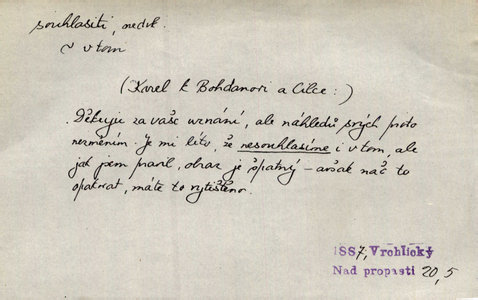 souhlasiti, nedok.
v tom
(Karel k Bohdanovi a Cilce:)
Děkuju za vaše uznání, ale náhledů svých proto
nezměním. Je mi líto, že nesouhlasíme i v tom, ale
jak jsem pravil, obraz je špatný – avšak nač to
opakovat, máte to vytištěno.
1887, Vrchlický
Nad propastí 20,5